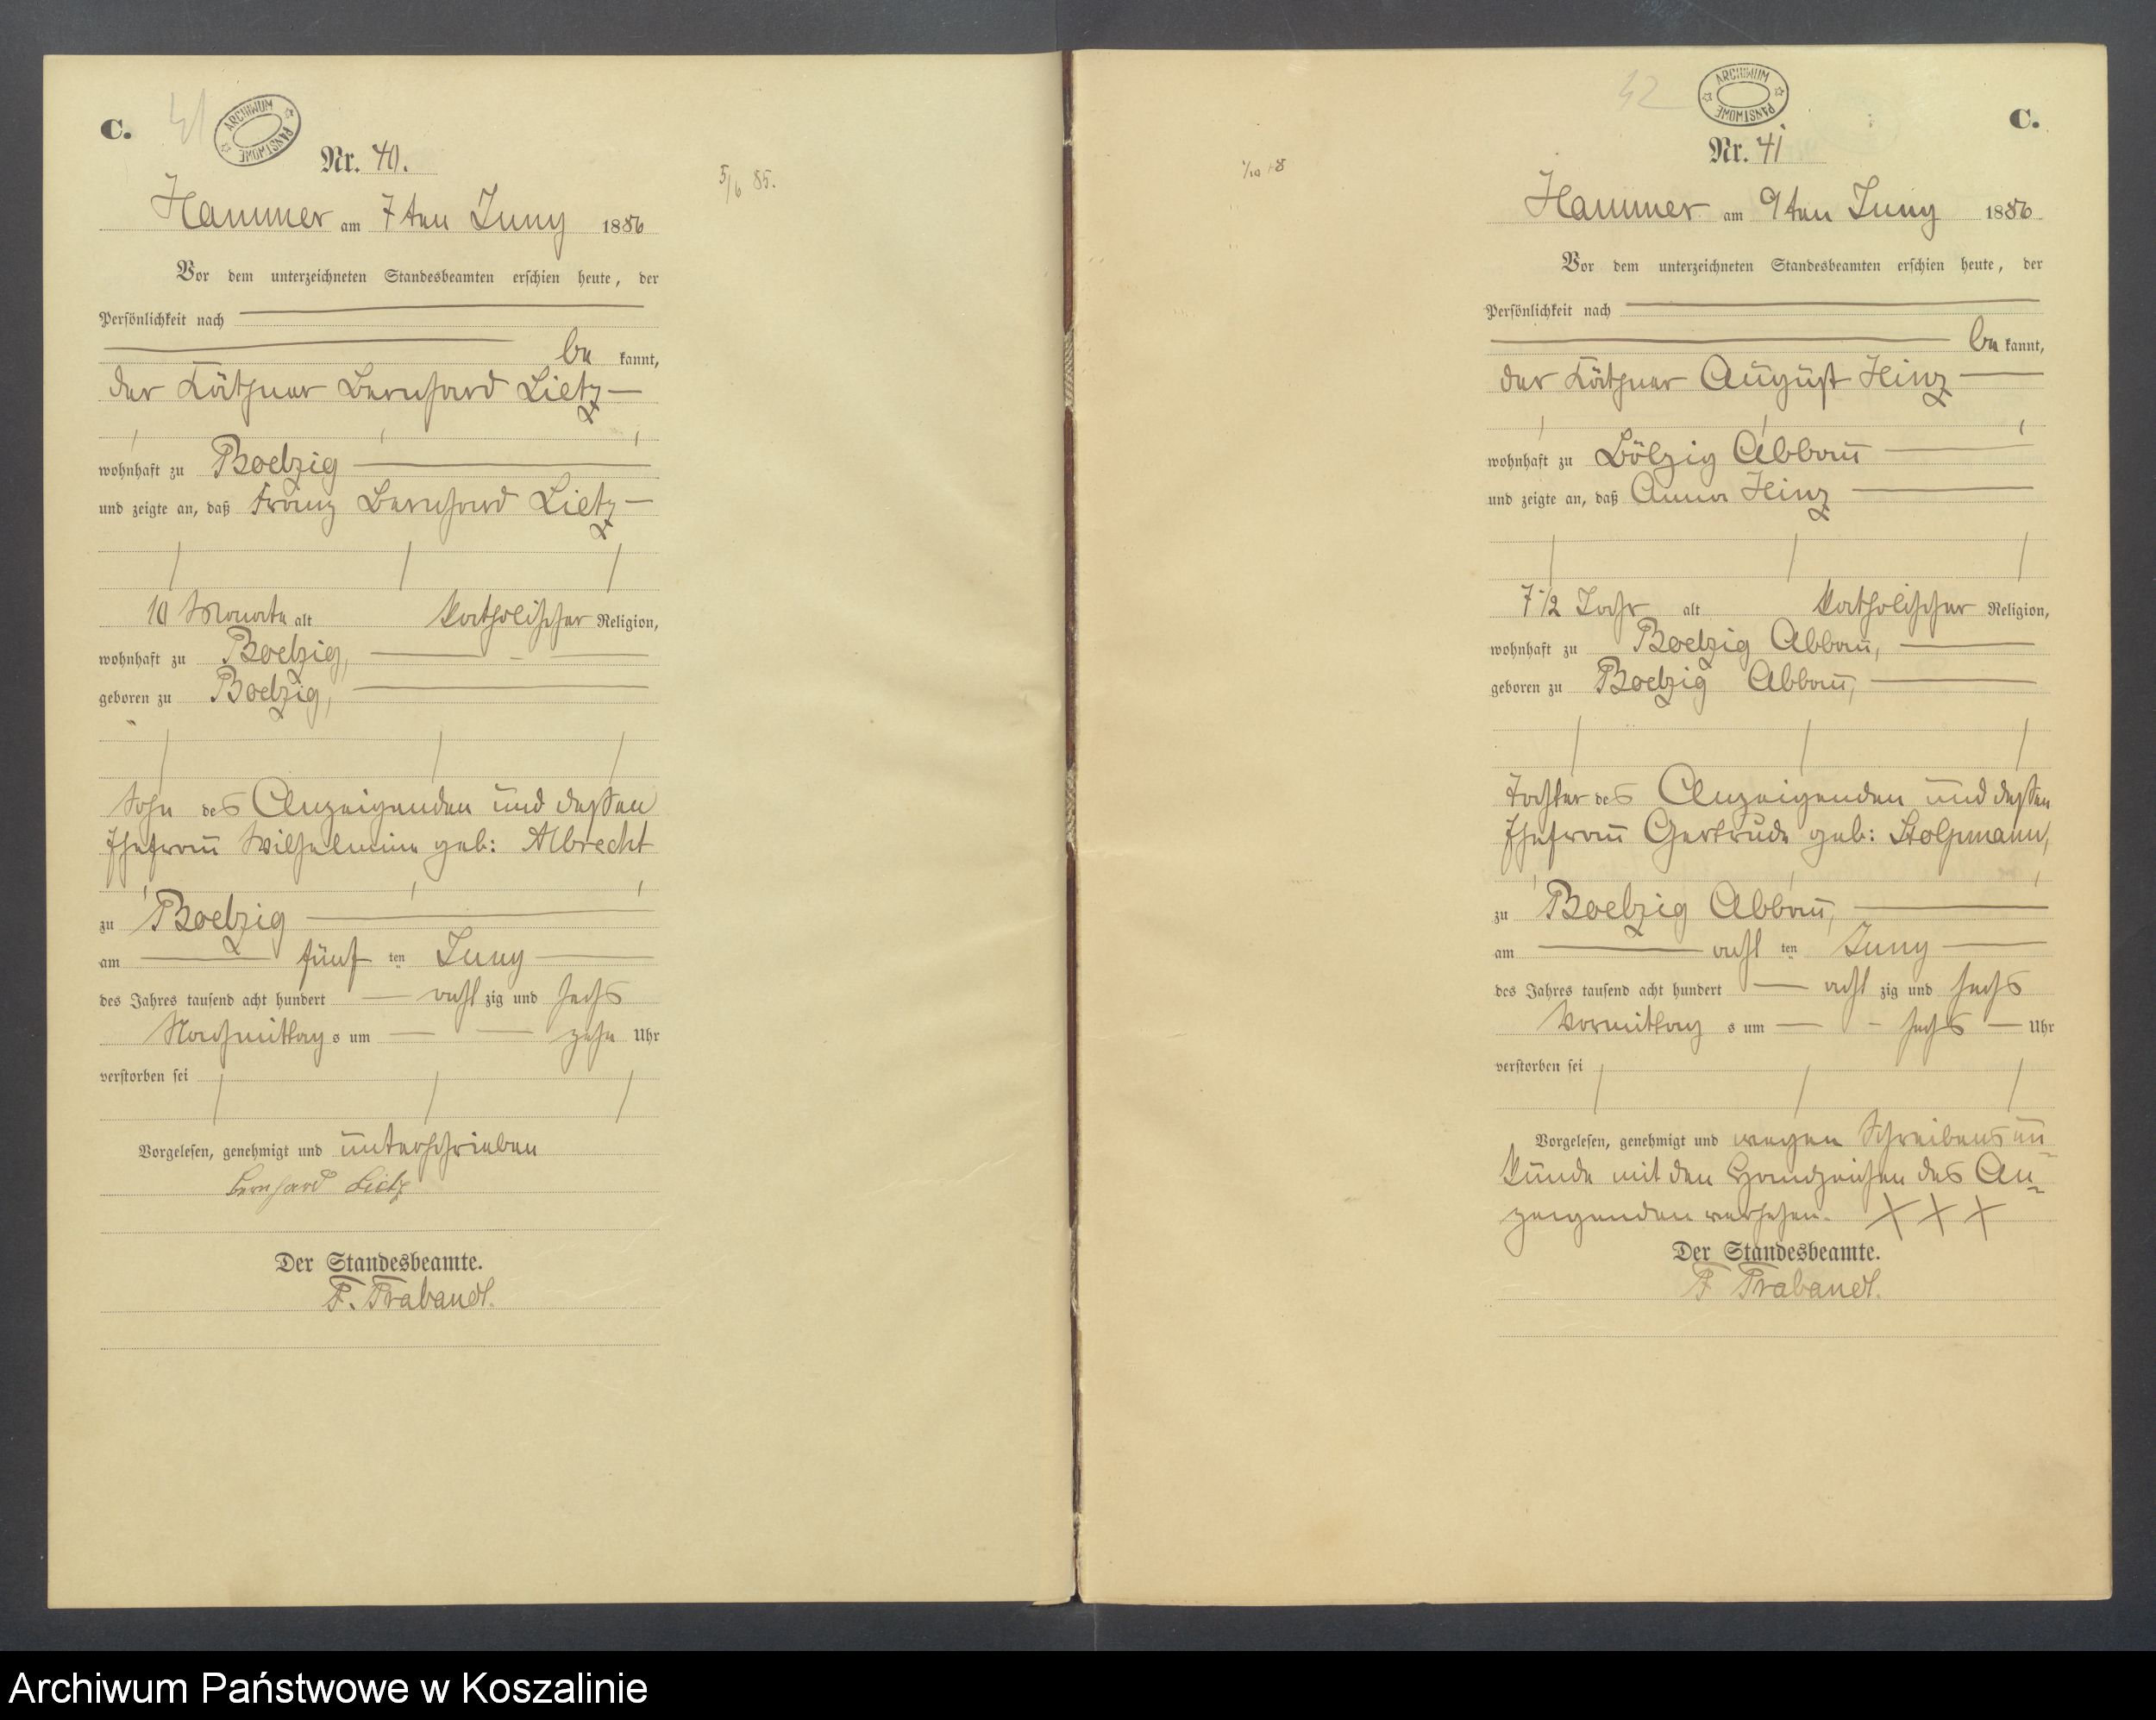 C.
41
ARCHIWUM PAŃSTWOWE
Nr. 40.
5/6 85.
Hammer am 7ten Juny 1886
Vor dem unterzeichneten Standesbeamten erschien heute, der
Persönlichkeit nach
be kannt,
der Käthner Bernhard Lietz
wohnhaft zu Boelzig
und zeigte an, daß Franz Bernhard Lietz
10 Monate alt katholischer Religion,
wohnhaft zu Boelzig,
geboren zu Boelzig,
Sohn des Anzeigenden und dessen
Ehefrau Wilhelmine geb: Albrecht
zu Boelzig
am fünf ten Juny
des Jahres tausend acht hundert acht zig und sechs
Nachmittag s um zehn Uhr
verstorben sei
Vorgelesen, genehmigt und unterschrieben
Bernhard Lietz
Der Standesbeamte.
F. Trabandt.
42
ARCHIWUM PAŃSTWOWE
C.
Nr. 41
Hammer am 9ten Juny 1886
Vor dem unterzeichneten Standesbeamten erschien heute, der
Persönlichkeit nach
be kannt,
der Käthner August Hinz
wohnhaft zu Bölzig Abbau
und zeigte an, daß Anna Hinz
7 1/2 Jahr alt katholischer Religion,
wohnhaft zu Boelzig Abbau,
geboren zu Boelzig Abbau,
Tochter des Anzeigenden und dessen
Ehefrau Gertrude geb: Stolpmann,
zu Boelzig Abbau,
am acht ten Juny
des Jahres tausend acht hundert acht zig und sechs
Vormittag s um sechs Uhr
verstorben sei
Vorgelesen, genehmigt und wegen Schreibensun
kunde mit den Handzeichen des An-
zeigenden versehen. X X X
Der Standesbeamte.
F Trabandt.
Archiwum Państwowe w Koszalinie